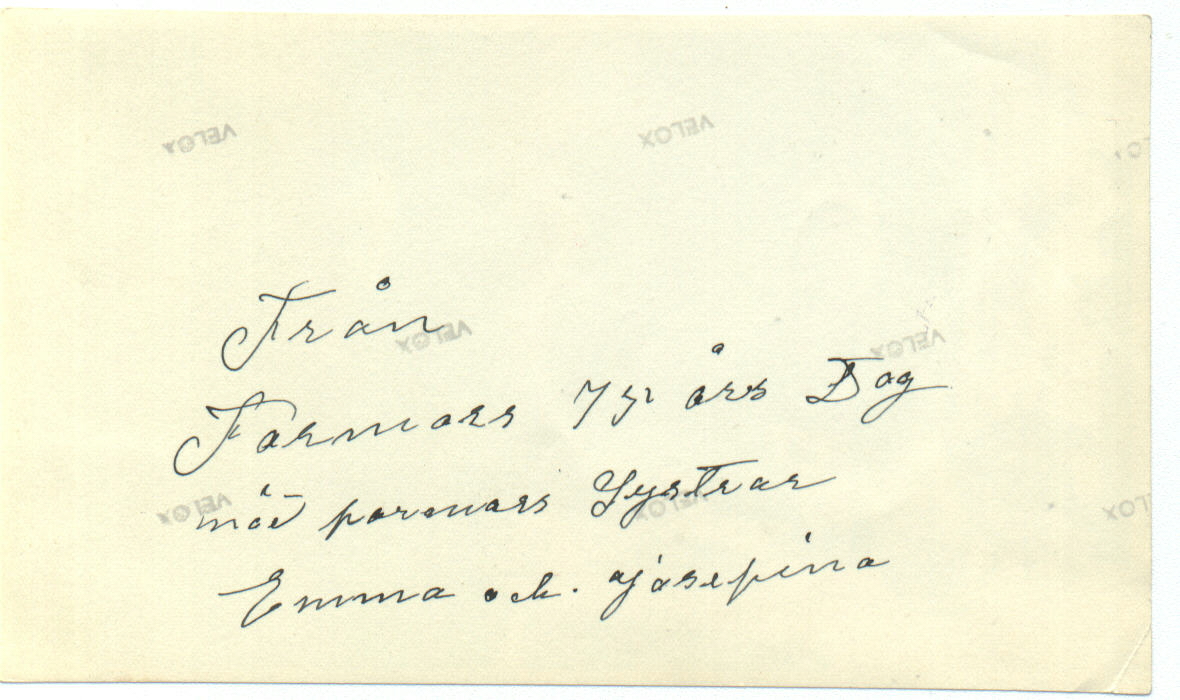 VELOX VELOX
Från
VELOX VELOX
Farmors 75 års Dag
med farmors Systrar
VELOX VELOX VELOX
Emma och. Josefina